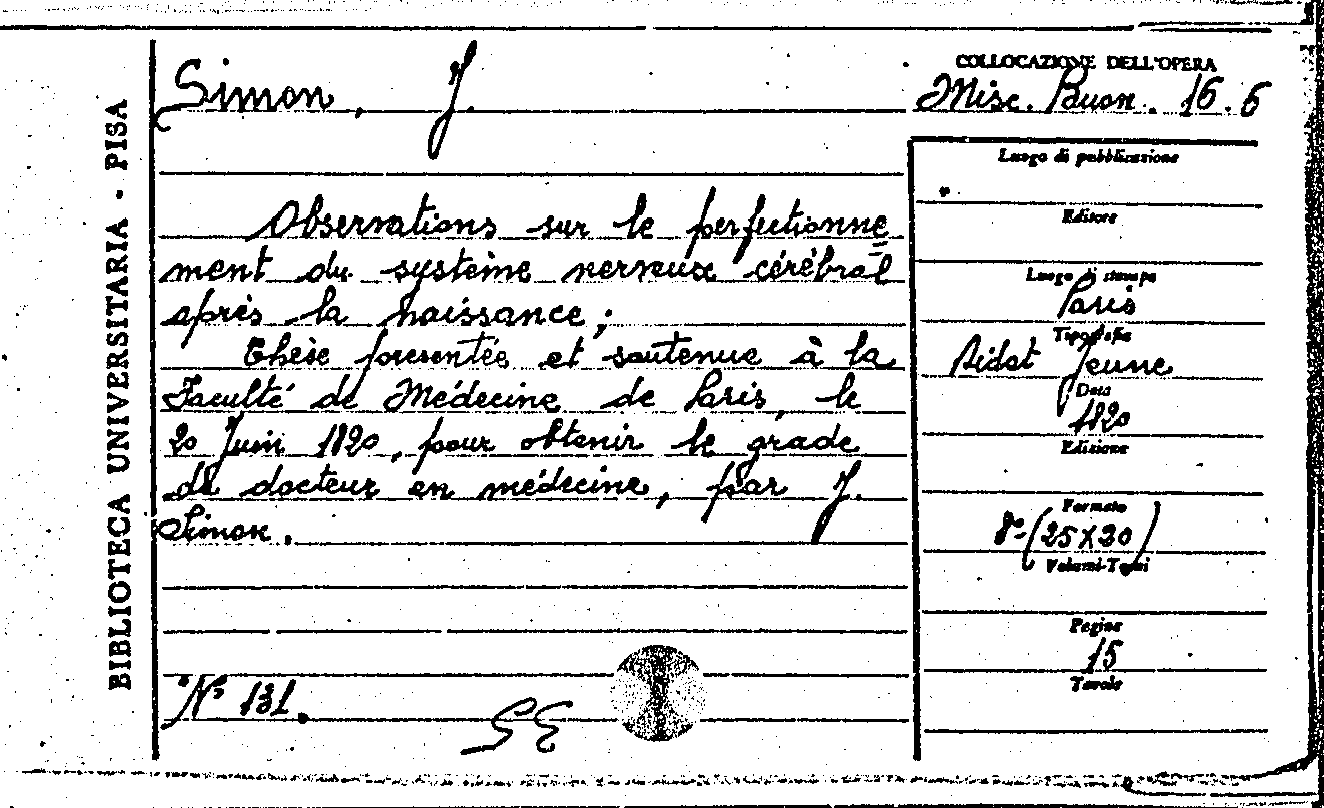 BIBLIOTECA UNIVERSITARIA - PISA
Simon, J.
Observations sur le perfectionne
ment du système nerveux cérébral
après la naissance;
Thèse presentée et soutenue à la
Faculté de Médecine de Paris, le
20 Juin 1820, pour obtenir le grade
de docteur en médecine, par J.
Simon.
N° 131.
COLLOCAZIONE DELL'OPERA
Misc. Buon. 16.6
Luogo di pubblicazione
Editore
Luogo di stampa
Paris
Tipografia
Didot Jeune
Data
1820
Edizione
Formato
8°(25X20)
Volumi-Tomi
Pagine
15
Tavole